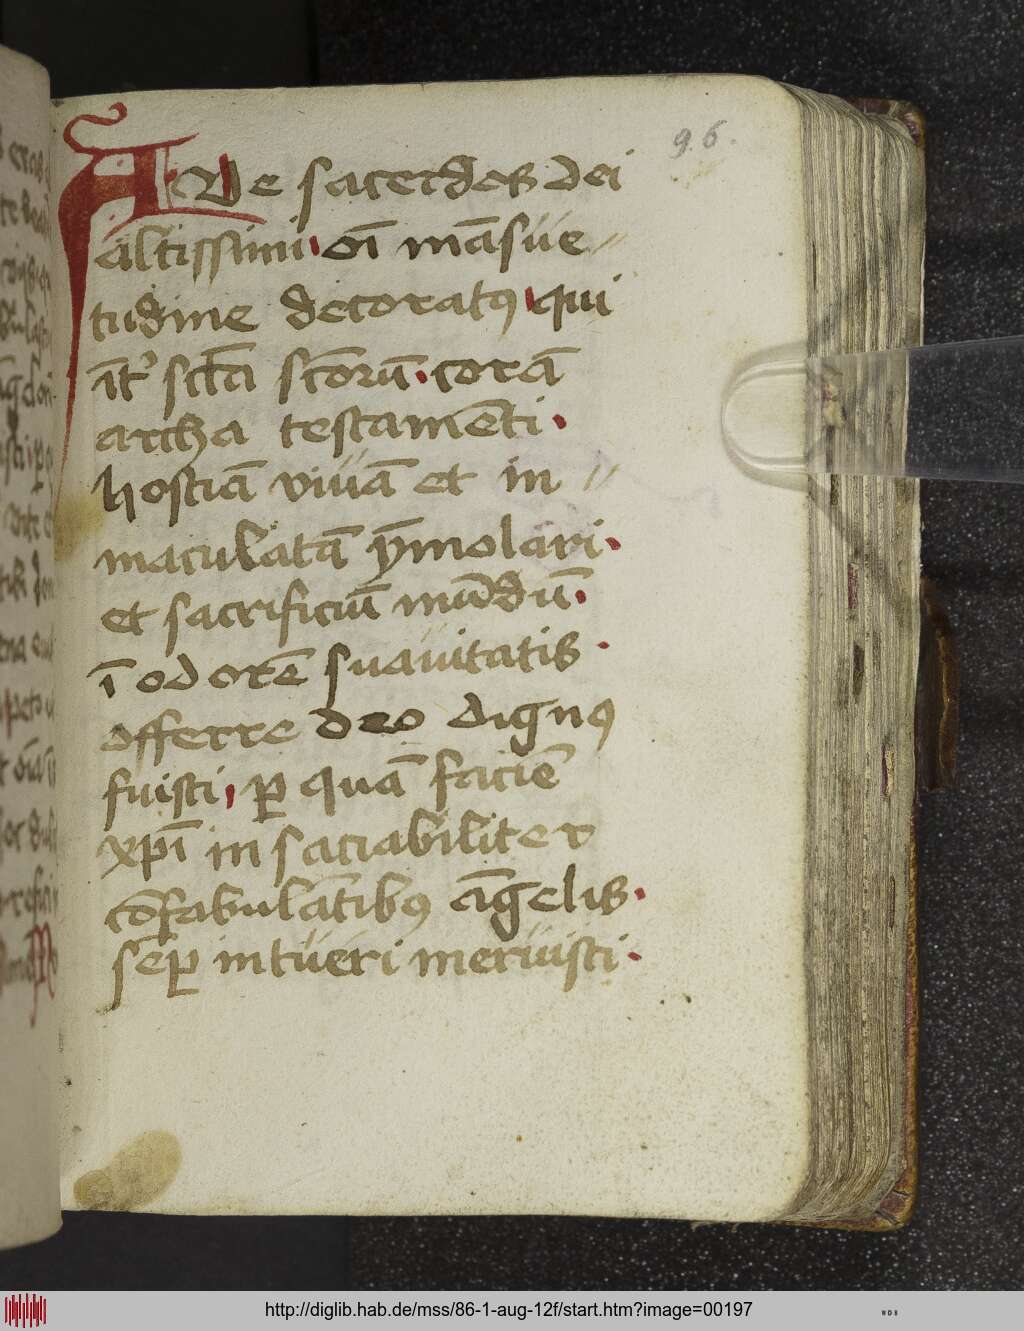 96.
AVe sacerdos dei
altissimi · oī māsue//
tudine decoratꝰ qui
īt᷑ sctā sctorū · corā
archa testamēti ·
hostiā viuā et in //
maculatā ymolari ·
et sacrificiū mūdū ·
ī odorē suauitatis ·
offerre deo dignꝰ
fuisti , ꝑ quā faciē
xp̄i insaciabiliter
cōfabulātibꝰ āgelis ·
sēꝑ intueri meruisti ·
http://diglib.hab.de/mss/86-1-aug-12f/start.htm?image=00197